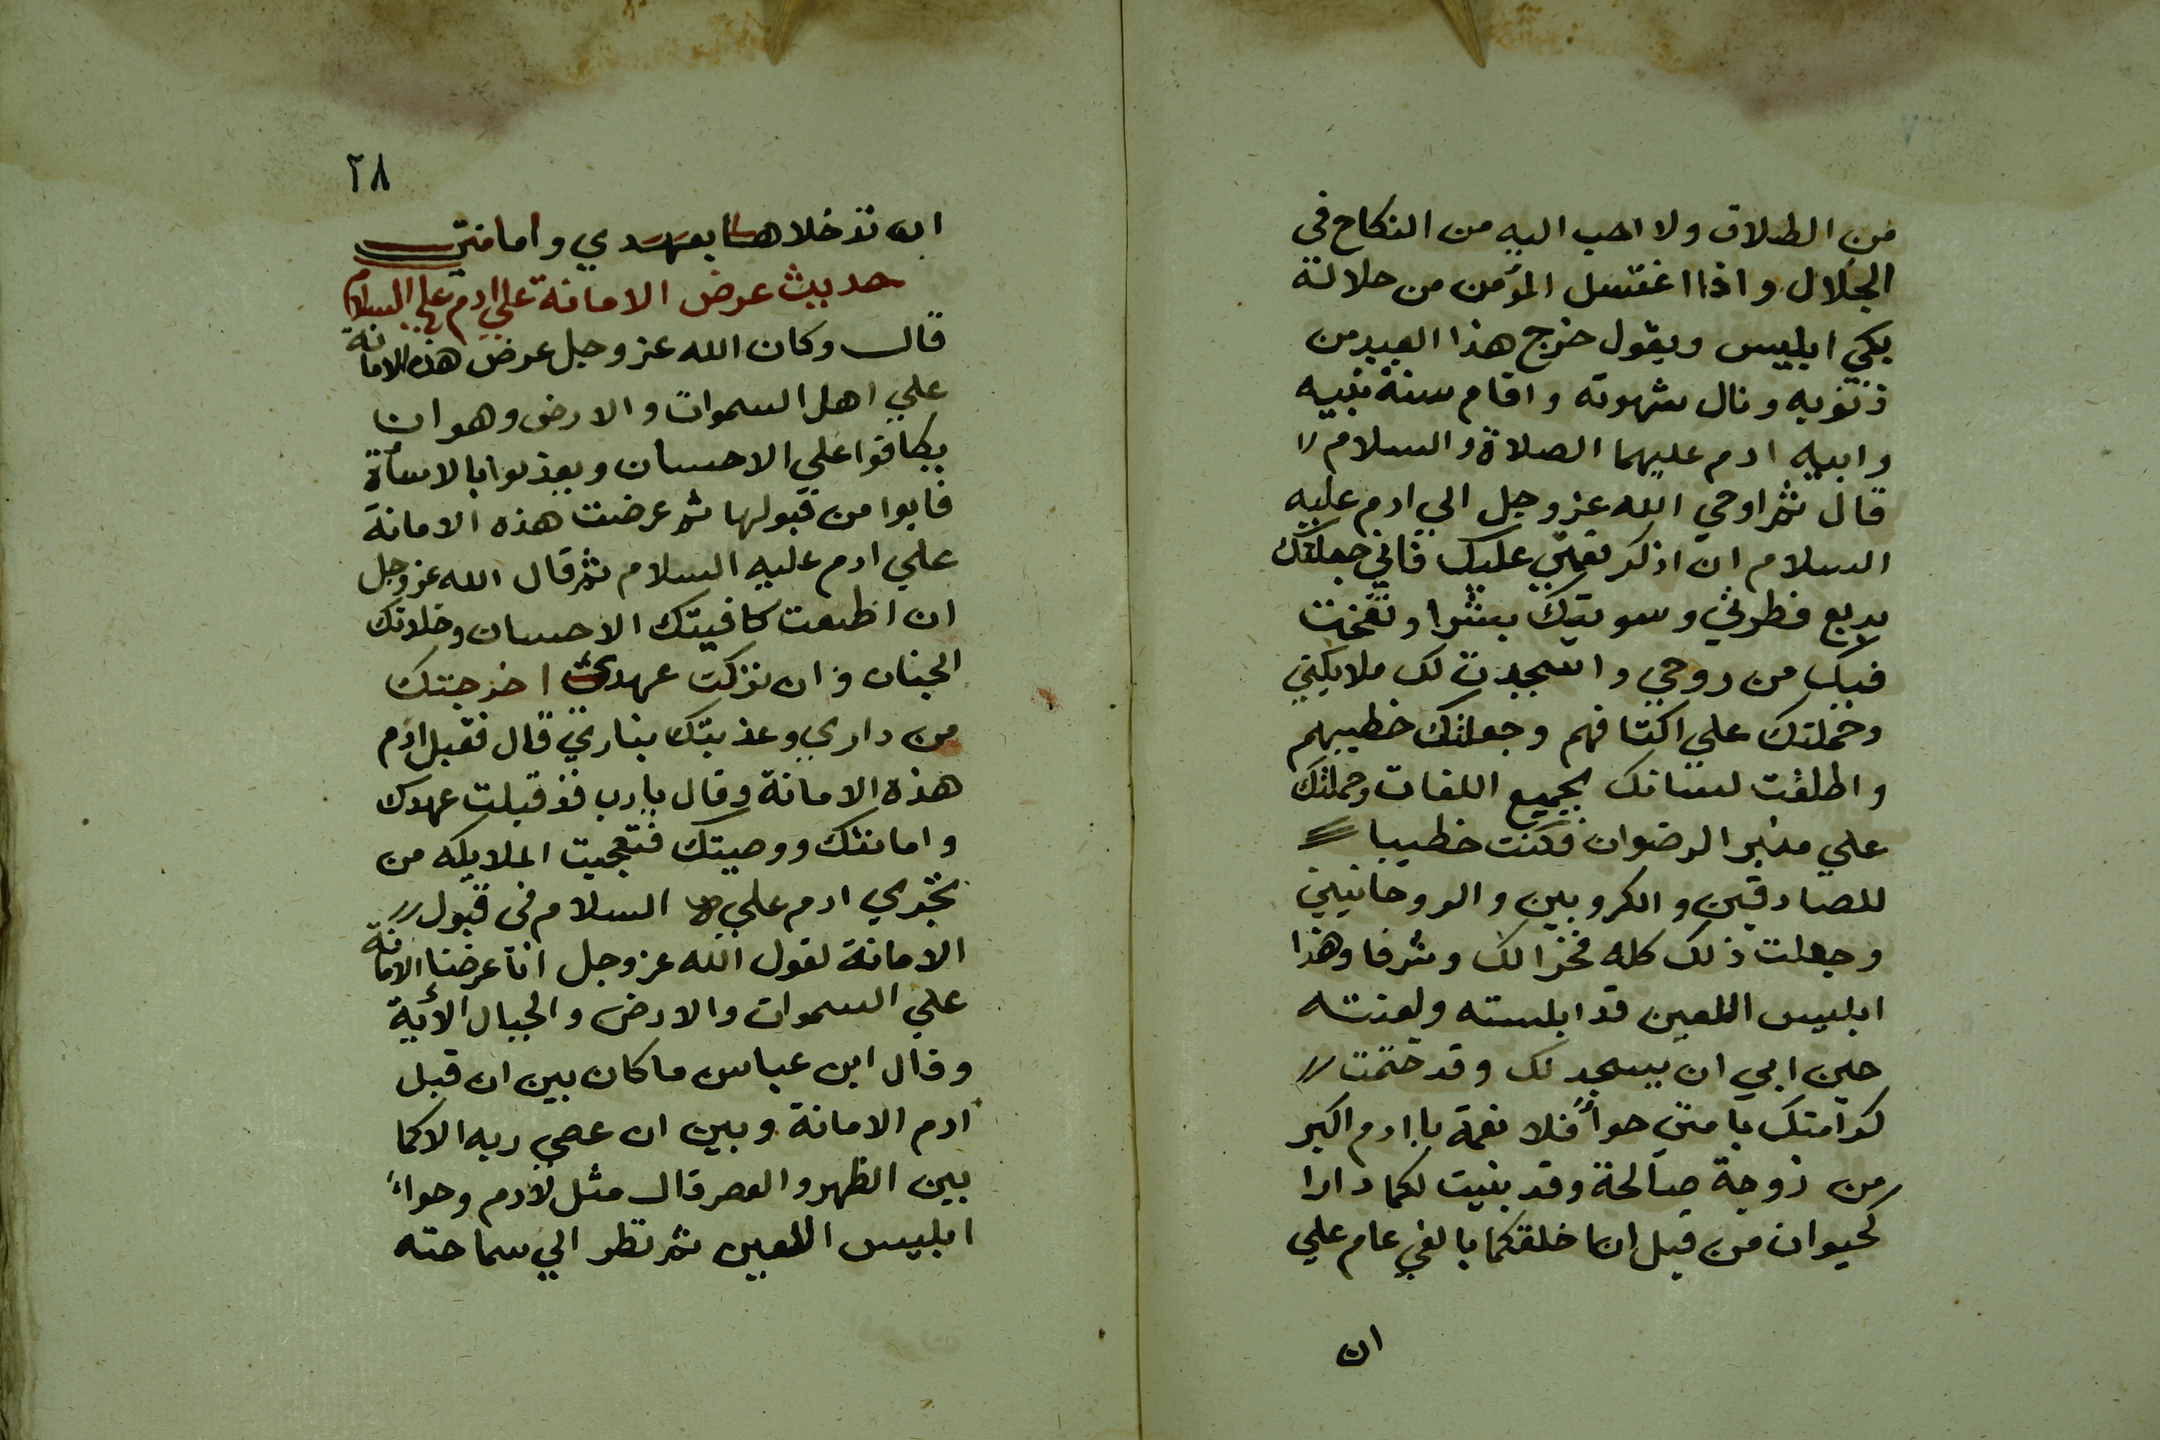 من الطلاق ولا احب اليه من النكاح فى
الحلال واذا اغتسل المؤمن من حلالة
بكي ابليس ويقول خرج هذا العبد من
ذنوبه ونال شهوته واقام سنة نبيه
وابيه ادم عليهما الصلاة والسلام
قال ثم اوحي الله عز وجل الي ادم عليه
السلام ان اذكر نعمتي عليك فاني جعلتك
بديع فطرتي وسويتك بشرا ونفخت
فيك من روحي واسجدت لك ملايكتي
وحملتك علي اكتافهم وجعلتك خطيبهم
واطلقت لسانك بجميع اللغات وحملتك
علي منبر الرضوان فكنت خطيبا
للصادقين والكروبين والروحانيين
وجعلت ذلك كله فخرا لك وشرفا وهذا
ابليس اللعين قد ابلسته ولعنته
حين ابي ان يسجد لك وقد ختمت
كرامتك بامتي حوأ فلا نعمة يا ادم اكبر
من زوجة صالحة وقد بنيت لكما دارا
لحيوان من قبل انا خلقتكما بالفي عام علي
ان
٢٨
ان تدخلاها بعهدي وامانتي
حديث عرض الامانة علي ادم عليه السلام
قال وكان الله عز وجل عرض هذه الامانة
علي اهل السموات والارض وهو ان
يكافوا علي الاحسان ويعذبوا بالاسأة
فابوا من قبولها ثم عرضت هذه الامانة
علي ادم عليه السلام ثم قال الله عز وجل
ان اطعت كافيتك الاحسان وخلدتك
الجنان وان تركت عهدي اخرجتك
من داري وعذبتك بناري قال فقبل ادم
هذه الامانة وقال يارب قد قبلت عهدك
وامانتك ووصيتك فتعجبت الملايكه من
تجري ادم عليه السلام فى قبول
الامانة لقول الله عز وجل انا عرضنا الامانة
علي السموات والارض والجبال الأية
وقال ابن عباس ما كان بين ان قبل
ادم الامانة وبين ان عصي ربه الا كما
بين الظهر والعصر قال مثل لادم وحواء
ابليس اللعين ثم نظر الي سماحته